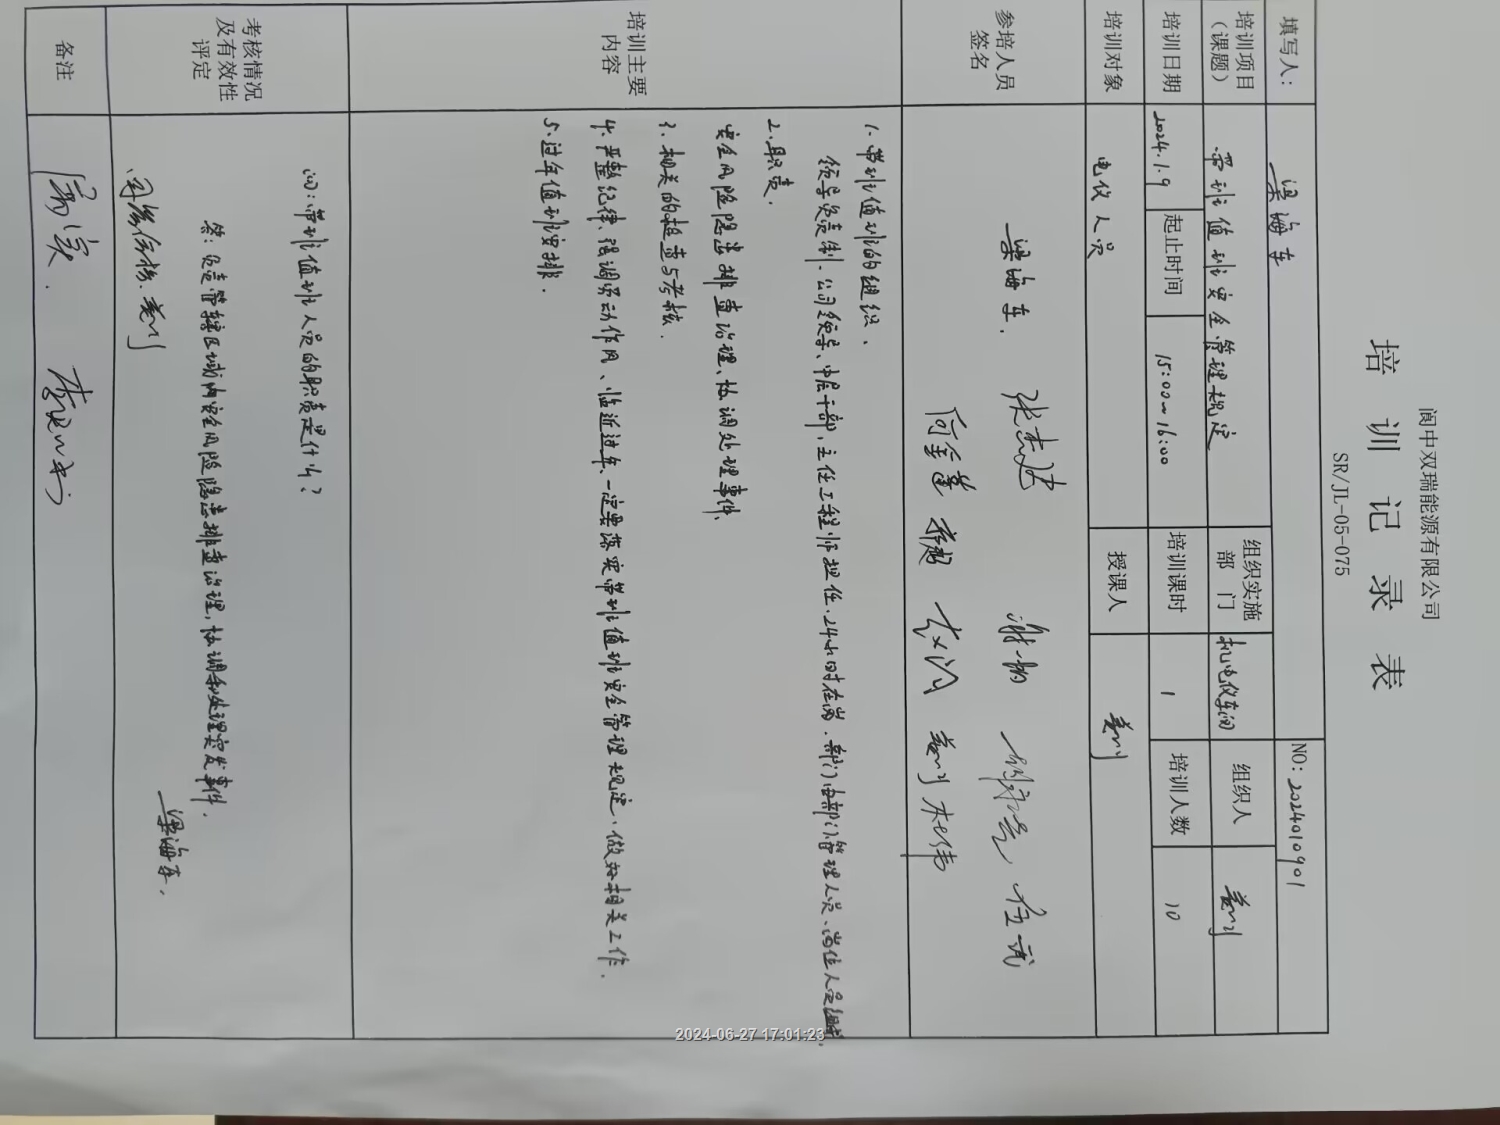 阆中双瑞能源有限公司
培训记录表
SR/JL-05-075
NO: 2024010901
填写人: 梁海车
培训项目（课题） 带班值班安全管理规定 组织实施部门 机电仪车间 组织人 姜川
培训日期 2024.1.9 起止时间 15:00~16:00 培训课时 1 培训人数 10
培训对象 电仪人员 授课人 姜川
参培人员签名 梁海车. 谢韬
姜川
培训主要内容
1. 带班值班的组织、
领导负责制. 公司领导、中层干部, 主任工程师担任. 24小时在岗. 部门由部门管理人员、岗位人员组成.
2. 职责.
安全风险隐患排查治理、协调处理事件.
3. 相关的检查与考核.
4. 严整纪律、强调劳动作风、临近过年、一定要落实带班值班安全管理规定, 做好相关工作.
5. 过年值班安排.
考核情况及有效性评定
问: 带班值班人员的职责是什么?
答: 负责管辖区域内安全风险隐患排查治理, 协调和处理突发事件.
梁海车.
同意合格. 姜川
备注
2024-06-27 17:01:23